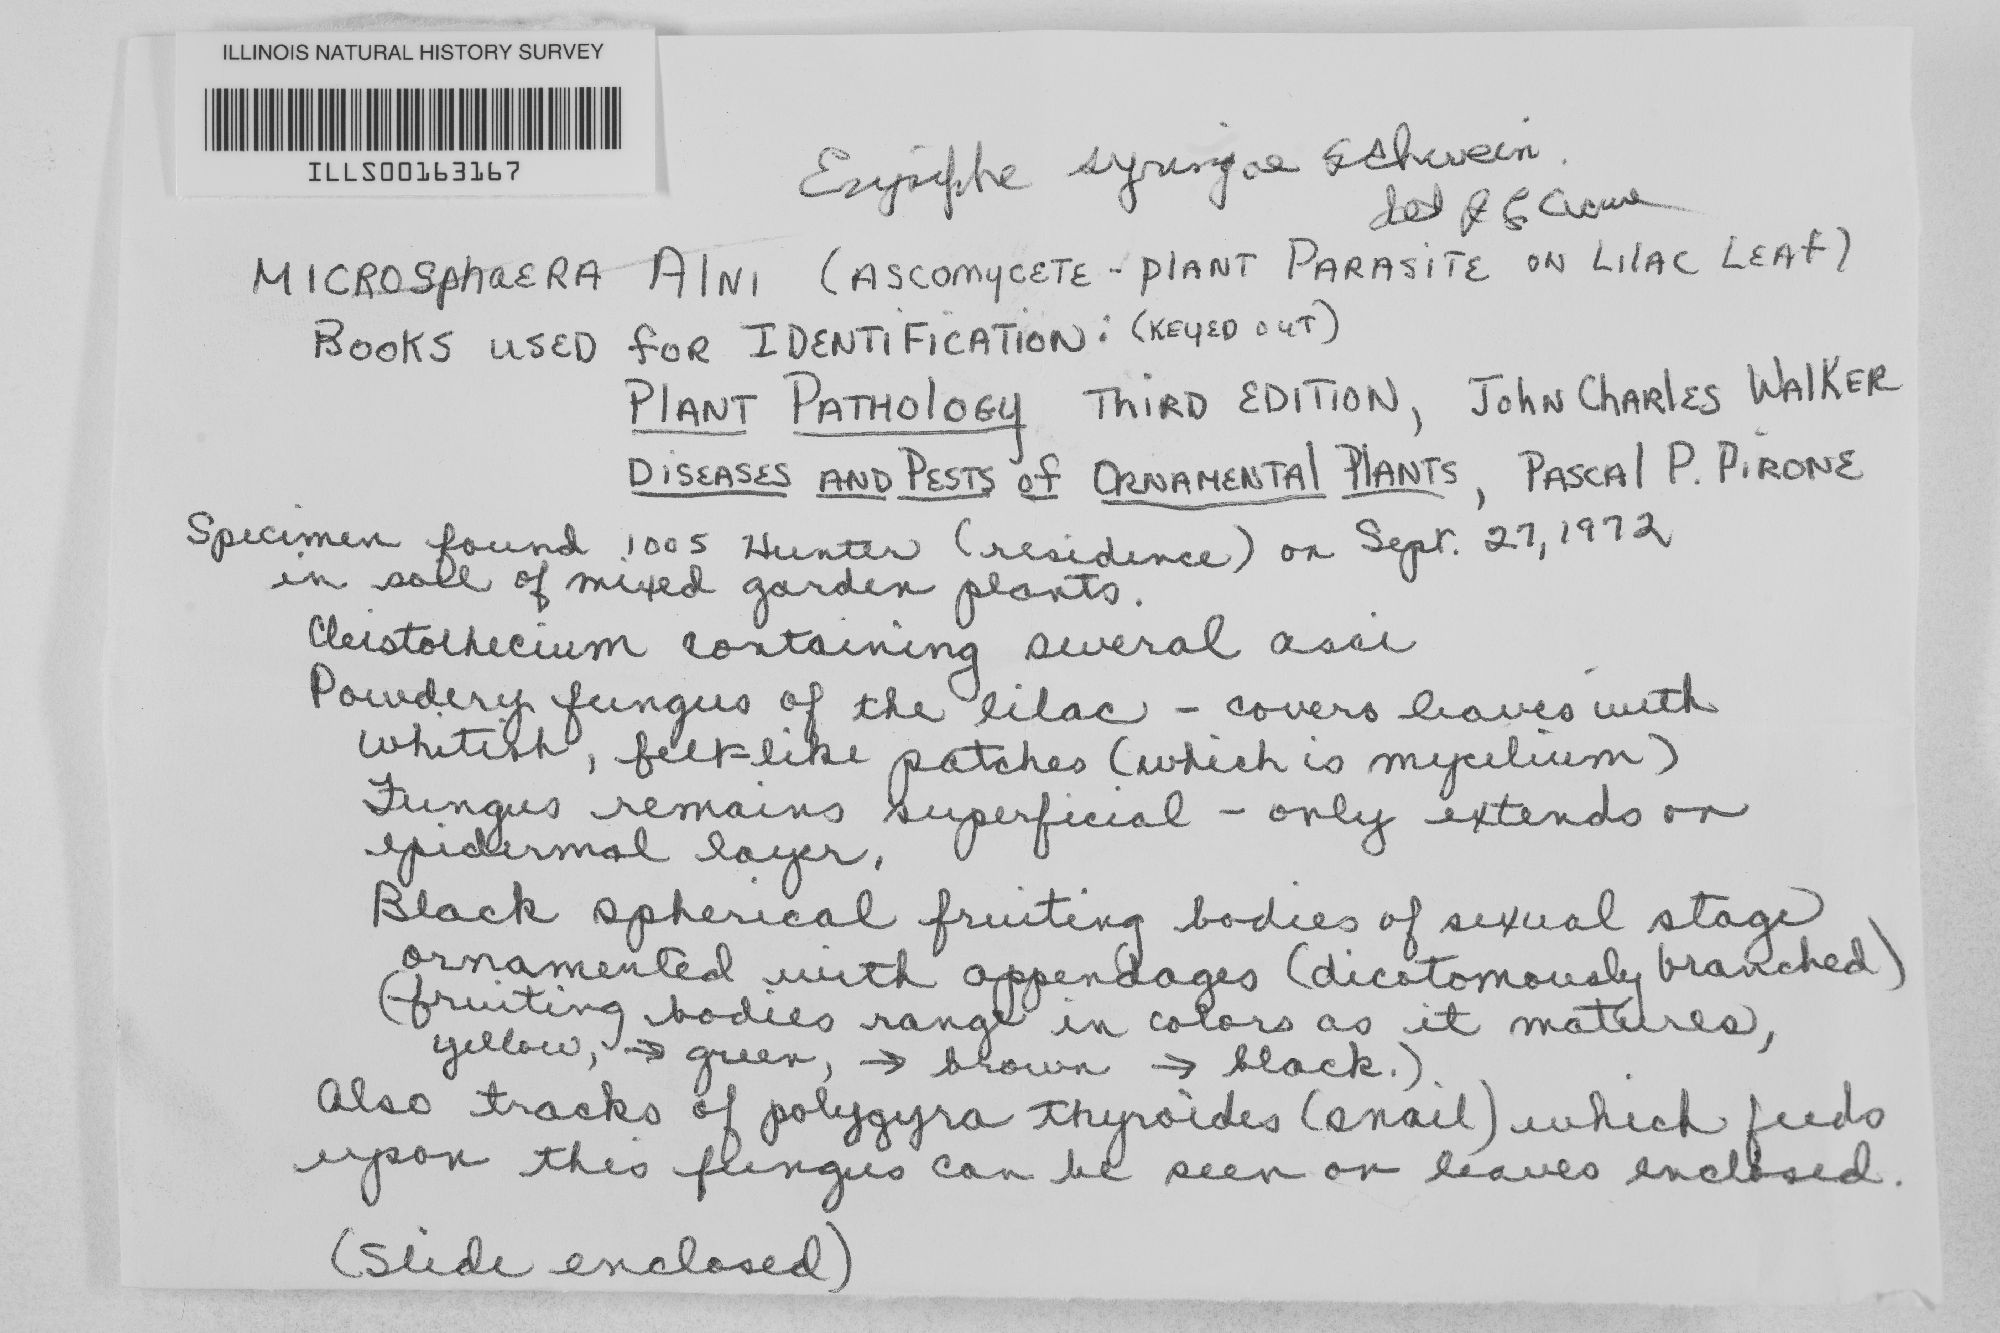 ILLINOIS NATURAL HISTORY SURVEY
ILLS00163167
Erysiphe syringae Schwein.
det J L Crane
MICROSphaERA AlNi (ASCOmyCETE - plANT PARASiTE ON LilAC LEAf)
BOOKS USED foR IDENTiFiCATiON: (KEYED OUT)
PlANT PATHOlOGY ThiRD EDITION, JOhN ChARlES WAlKER
DiSEASES AND PESTS of ORNAMENTAl PlANTS, PASCAl P. PiRONE
Specimen found 1005 Hunter (residence) on Sept. 27, 1972
in soil of mixed garden plants.
Cleistothecium containing several asci
Powdery fungus of the lilac - covers leaves with
whitish, felt-like patches (which is mycelium)
Fungus remains superficial - only extends on
epidermal layer.
Black spherical fruiting bodies of sexual stage
ornamented with appendages (dicotomously branched)
(fruiting bodies range in colors as it matures,
yellow, → green, → brown → black.)
Also tracks of polygyra thyroides (snail) which feeds
upon this fungus can be seen on leaves enclosed.
(Slide enclosed)